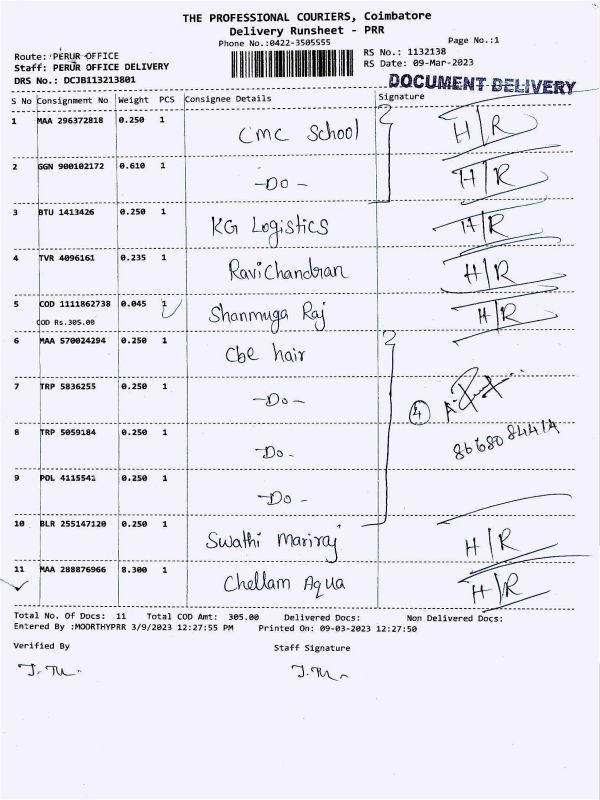 THE PROFESSIONAL COURIERS, Coimbatore
Delivery Runsheet - PRR
Phone No.:0422-3505555
Page No.:1
Route: PERUR OFFICE
RS No.: 1132138
Staff: PERUR OFFICE DELIVERY
RS Date: 09-Mar-2023
DRS No.: DCJB113213801
DOCUMENT DELIVERY
S No Consignment No Weight PCS Consignee Details Signature
1 MAA 296372818 0.250 1 CMC School H/R
2 GGN 900102172 0.610 1 -Do- H/R
3 BTU 1413426 0.250 1 KG Logistics H/R
4 TVR 4096161 0.235 1 Ravichandran H/R
5 COD 1111862738 0.045 1 Shanmuga Raj H/R
COD Rs.305.00
6 MAA 570024294 0.250 1 Cbe hair
7 TRP 5836255 0.250 1 -Do-
4
8 TRP 5059184 0.250 1 -Do-
9 POL 4115541 0.250 1 -Do-
10 BLR 255147120 0.250 1 Swathi Mariraj H/R
11 MAA 288876966 8.300 1 Chellam Aqua H/R
Total No. Of Docs: 11 Total COD Amt: 305.00 Delivered Docs: Non Delivered Docs:
Entered By :MOORTHYPRR 3/9/2023 12:27:55 PM Printed On: 09-03-2023 12:27:50
Verified By Staff Signature